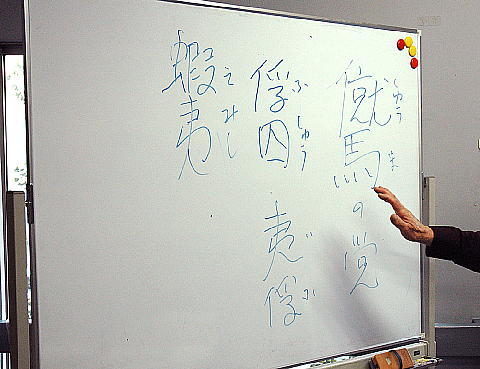 僦馬の党
しゅう ま
俘囚 夷俘
ふ しゅう い ふ
蝦夷
えみし